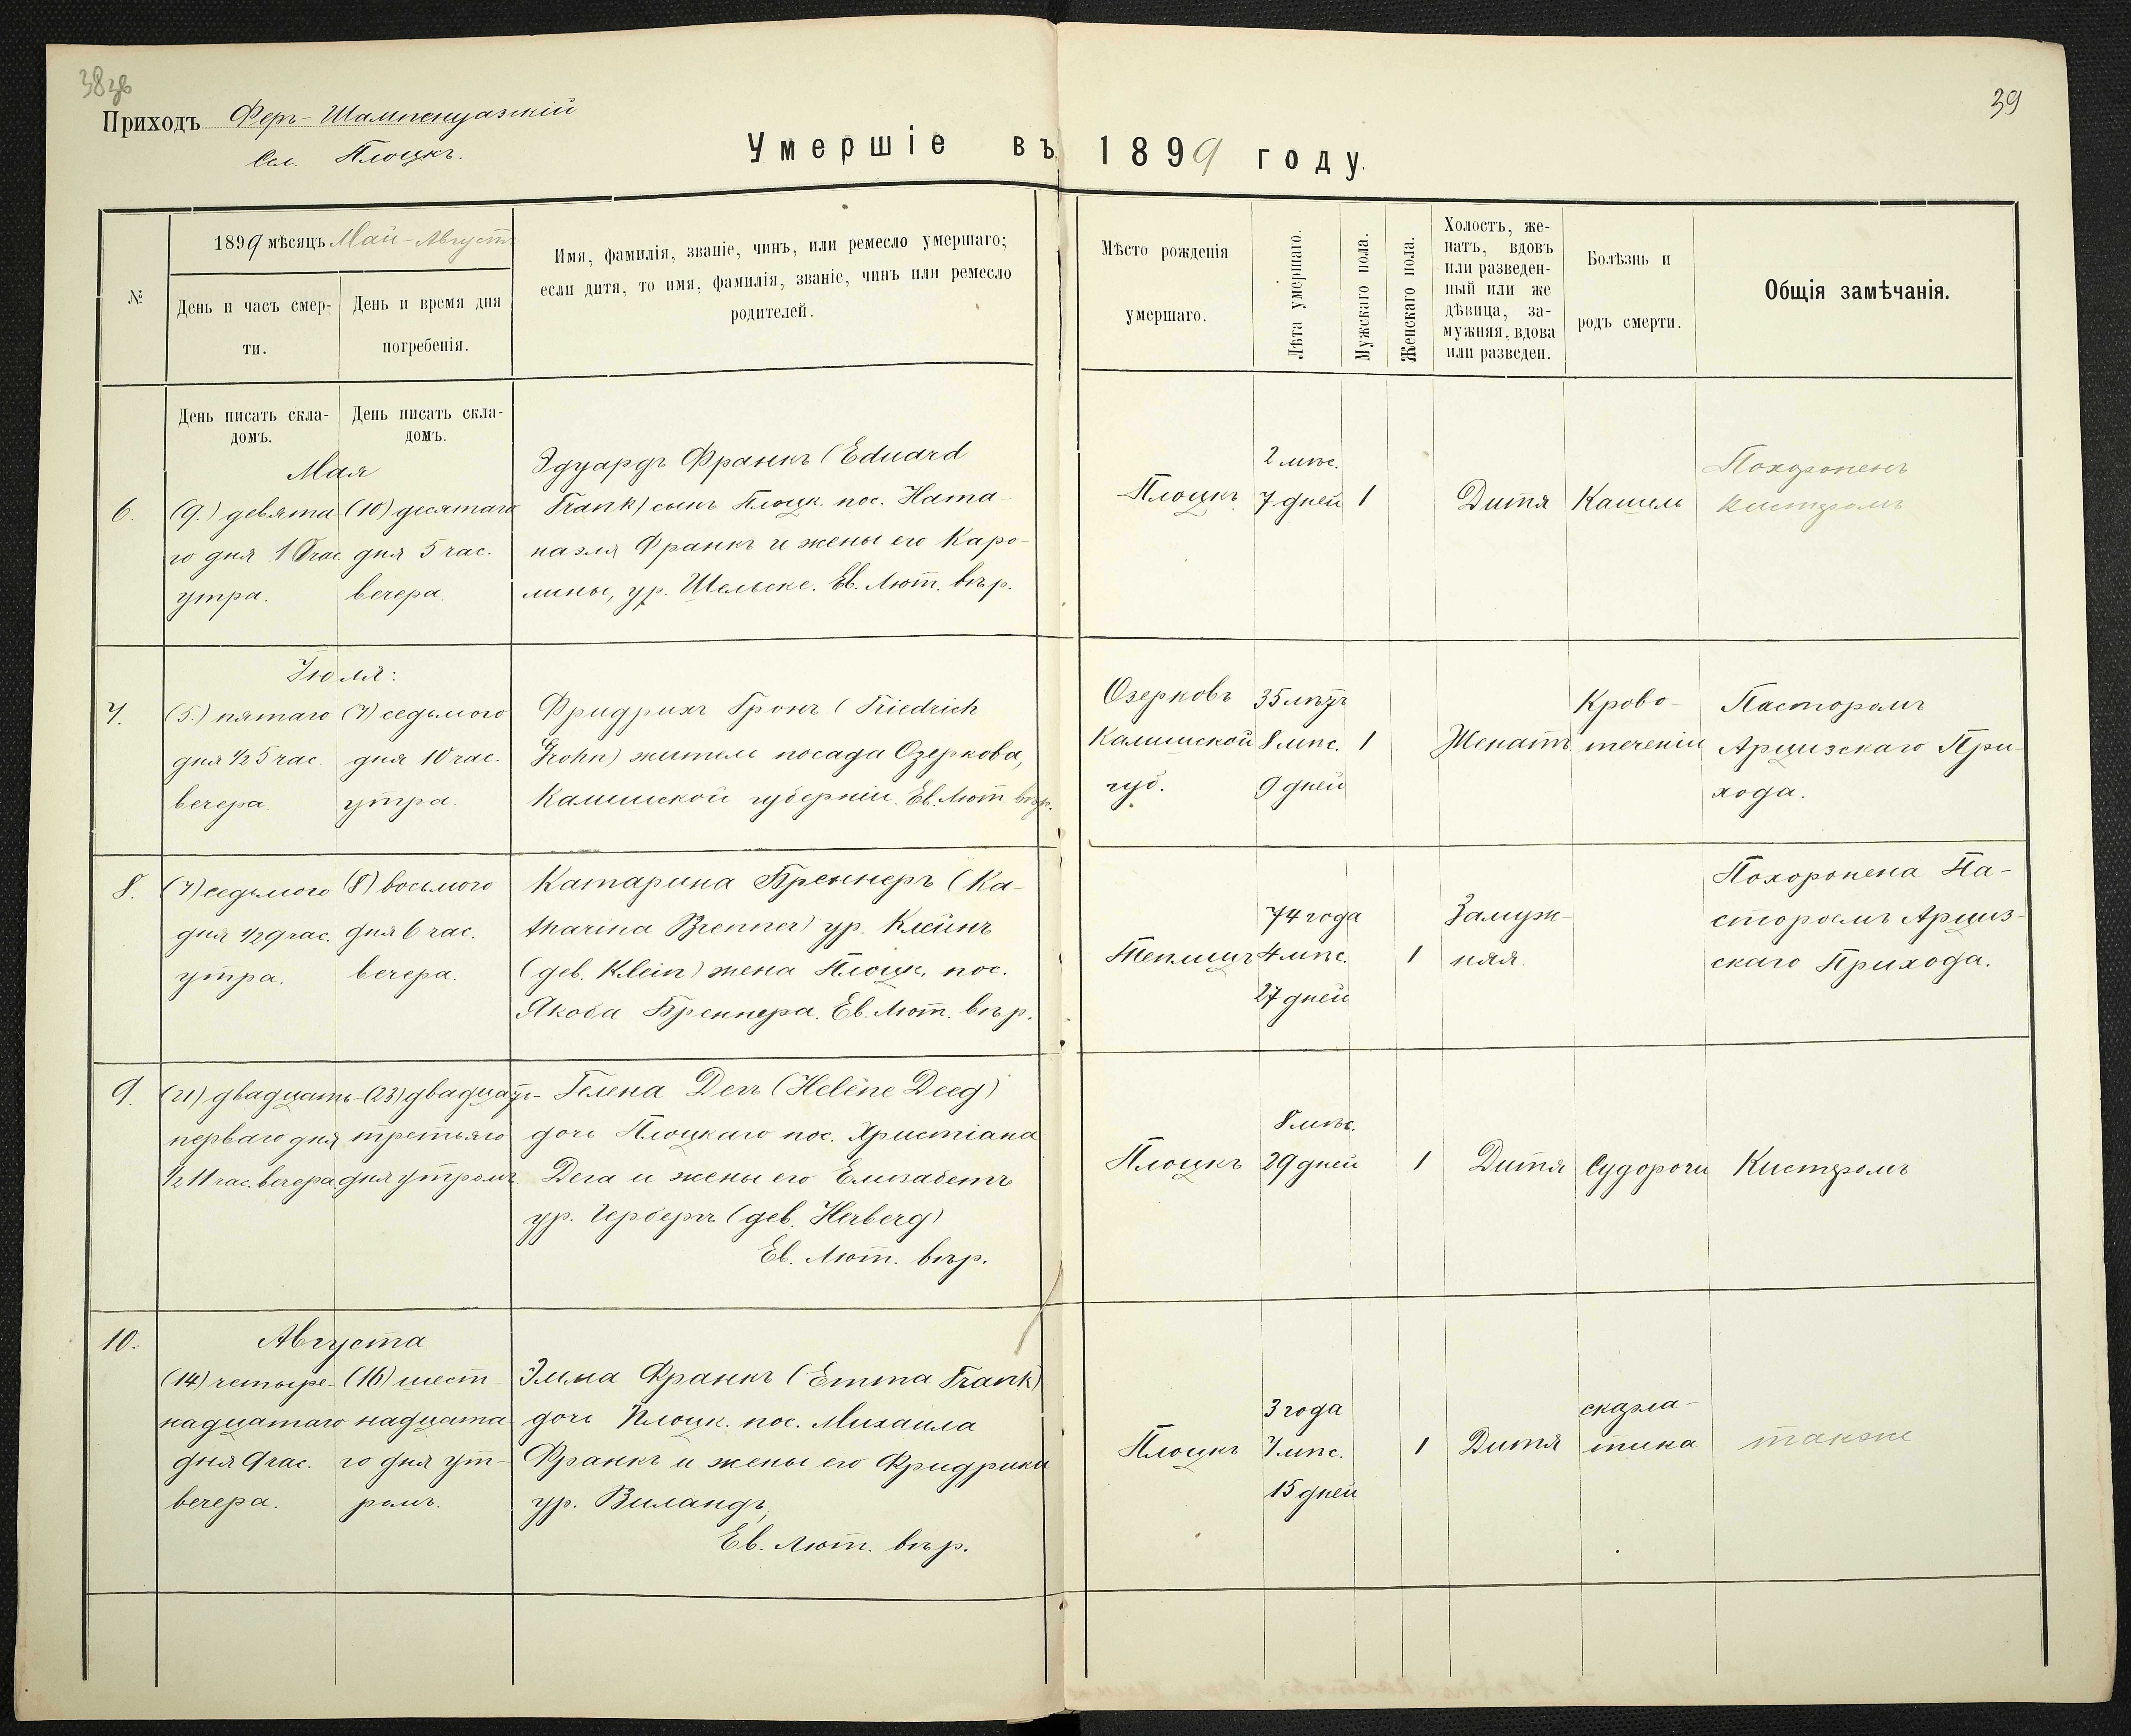 38 зв
39
Приходъ Феръ-Шампенуазскій
Сел. Плоцкъ.
Умершіе въ 1899 году.
№
1899 мѣсяцъ Май-Августъ
День и часъ смер-
ти.
День и время дня
погребенія.
Имя, фамилія, званіе, чинъ, или ремесло умершаго;
если дитя, то имя, фамилія, званіе, чинъ или ремесло
родителей.
Мѣсто рожденія
умершаго.
Лѣта умершаго.
Мужскаго пола.
Женскаго пола.
Холостъ, же-
натъ, вдовъ
или разведен-
ный или же
дѣвица, за-
мужняя, вдова
или разведен.
Болѣзнь и
родъ смерти.
Общія замѣчанія.
День писать скла-
домъ.
День писать скла-
домъ.
Мая
6.
(9.) девята-
го дня 10 час.
утра.
(10) десятаго
дня 5 час.
вечера.
Эдуардъ Франкъ (Eduard
Frank) сынъ Плоцк. пос. Ната-
наэля Франкъ и жены его Каро-
лины, ур. Шельске. Ев. Лют. вѣр.
Плоцкъ
2 мѣс.
7 дней
1
Дитя
Кашель
Похороненъ
кистеромъ
Іюля:
7.
(5.) пятаго
дня ½ 5 час.
вечера.
(7) седьмого
дня 10 час.
утра.
Фридрихъ Гронъ (Friedrich
Grohn) житель посада Озеркова,
Калишской губерніи. Ев. Лют. вѣр.
Озерковъ
Калишской
губ.
35 лѣтъ
8 мѣс.
9 дней
1
Женатъ
Крово-
теченіи
Пасторомъ
Арцизскаго При-
хода.
8.
(7) седьмого
дня ½ 9 час.
утра.
(8) восьмого
дня 6 час.
вечера.
Катарина Бреннеръ (Ka-
tharina Brenner) ур. Клейнъ
(geb. Klein) жена Плоцк. пос.
Якова Бреннера. Ев. Лют. вѣр.
Теплицъ
74 года
4 мѣс.
27 дней
1
Замуж-
няя.
Похоронена Па-
сторомъ Арциз-
скаго Прихода.
9.
(21) двадцать-
перваго дня
½ 11 час. вечера.
(23) двадцать-
третьяго
дня утромъ
Гелена Дегъ (Helène Deeg)
дочь Плоцкаго пос. Христіана
Дега и жены его Елизабетъ
ур. Гербергъ (geb. Herberg)
Ев. Лют. вѣр.
Плоцкъ
8 мѣс.
29 дней
1
Дитя
Судороги
Кистеромъ
10.
Августа
(14) четыре-
надцатаго
дня 9 час.
вечера.
(16) шест-
надцата-
го дня ут-
ромъ.
Эмма Франкъ (Emma Frank)
дочь Плоцк. пос. Михаила
Франкъ и жены его Фридрики
ур. Виландъ,
Ев. Лют. вѣр.
Плоцкъ
3 года
7 мѣс.
15 дней
1
Дитя
скарла-
тина
также